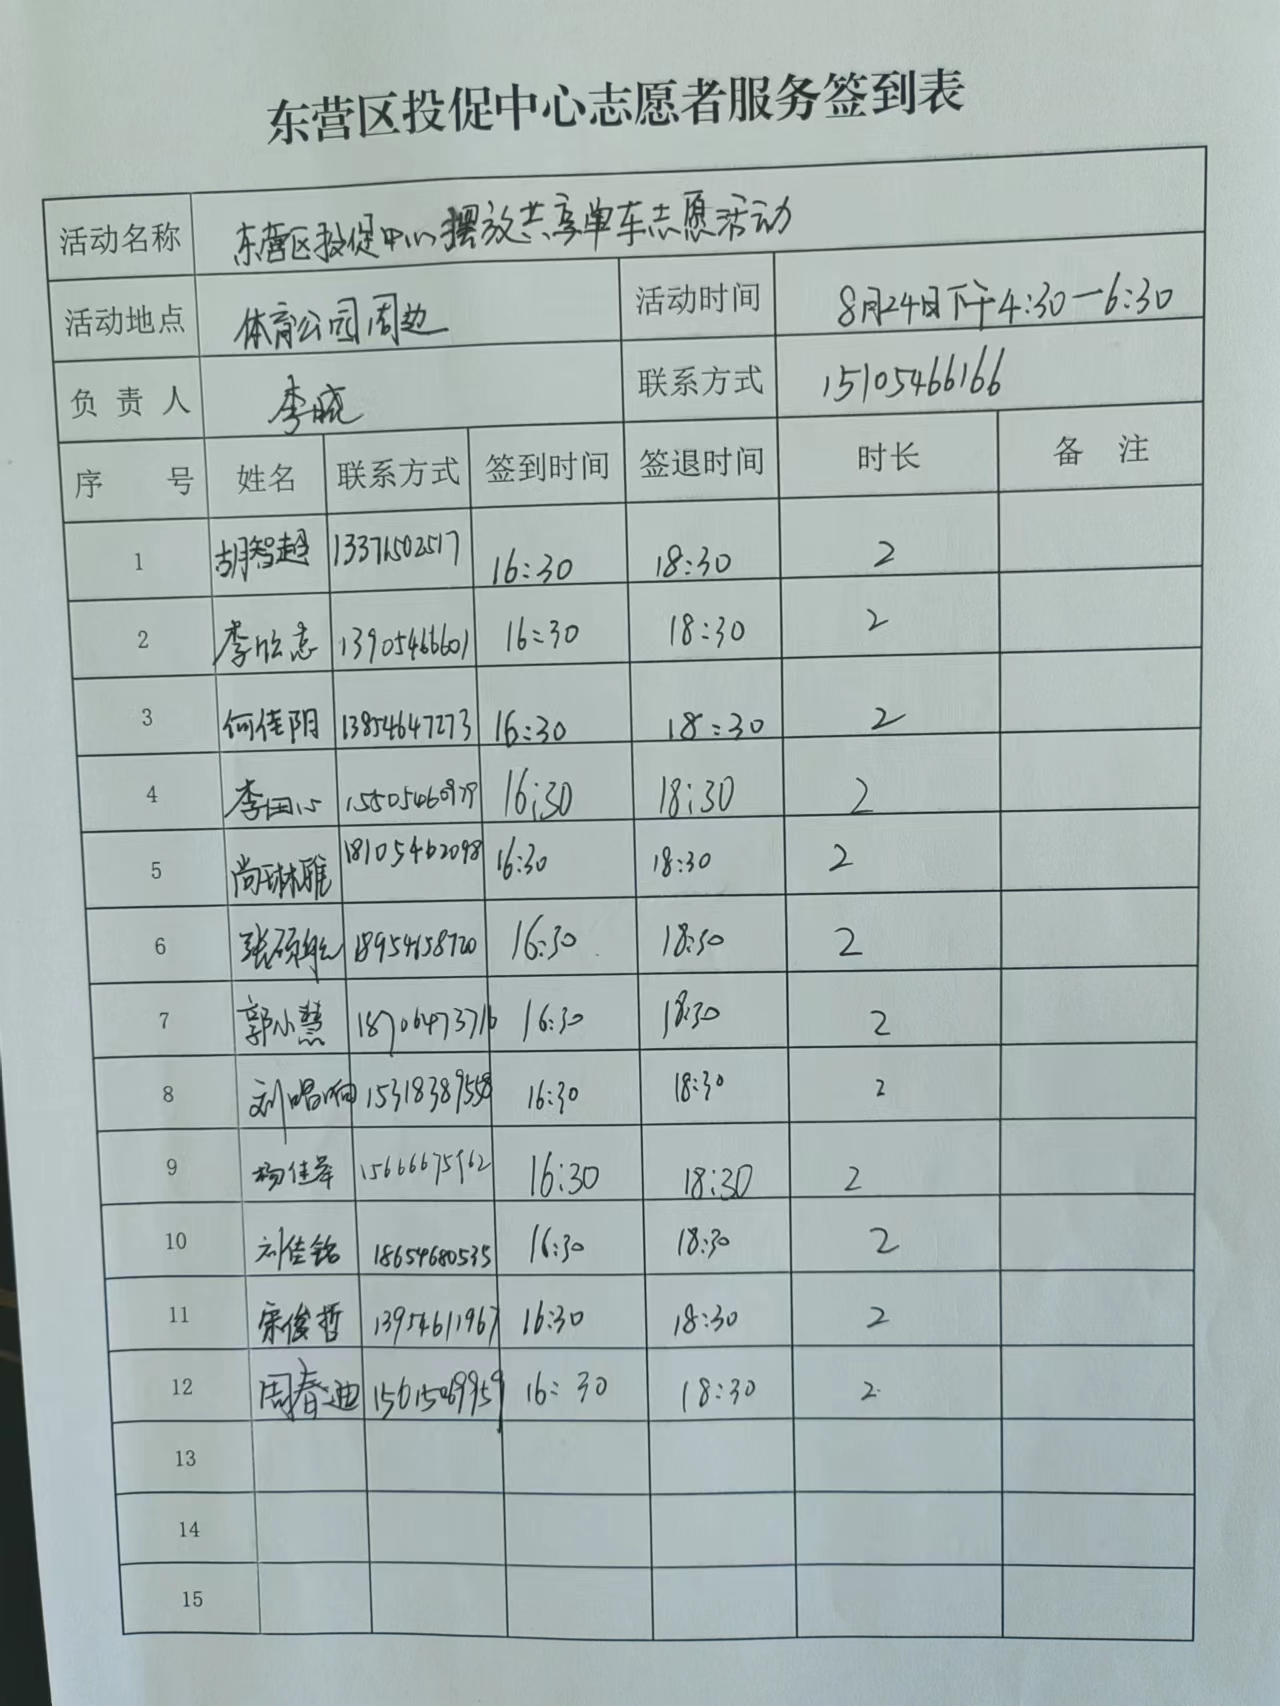 东营区投促中心志愿者服务签到表
活动名称 东营区投促中心摆放共享单车志愿活动
活动地点 体育公园周边 活动时间 8月24日下午4:30一6:30
负责人 李晓 联系方式 15105466166
序号 姓名 联系方式 签到时间 签退时间 时长 备注
1 胡智超 13371502517 16:30 18:30 2
2 李欣志 13905466601 16:30 18:30 2
3 何佳阴 13854647273 16:30 18:30 2
4 16:30 18:30 2
5 尚琳雅 18105462098 16:30 18:30 2
6 张硕航 18954658720 16:30 18:30 2
7 郭小慧 18706473716 16:30 18:30 2
8 刘唱响 15318389558 16:30 18:30 2
9 15666675962 16:30 18:30 2
10 刘佳铭 18654680535 16:30 18:30 2
11 宋俊哲 13954611967 16:30 18:30 2
12 周春迪 15615069959 16:30 18:30 2
13
14
15